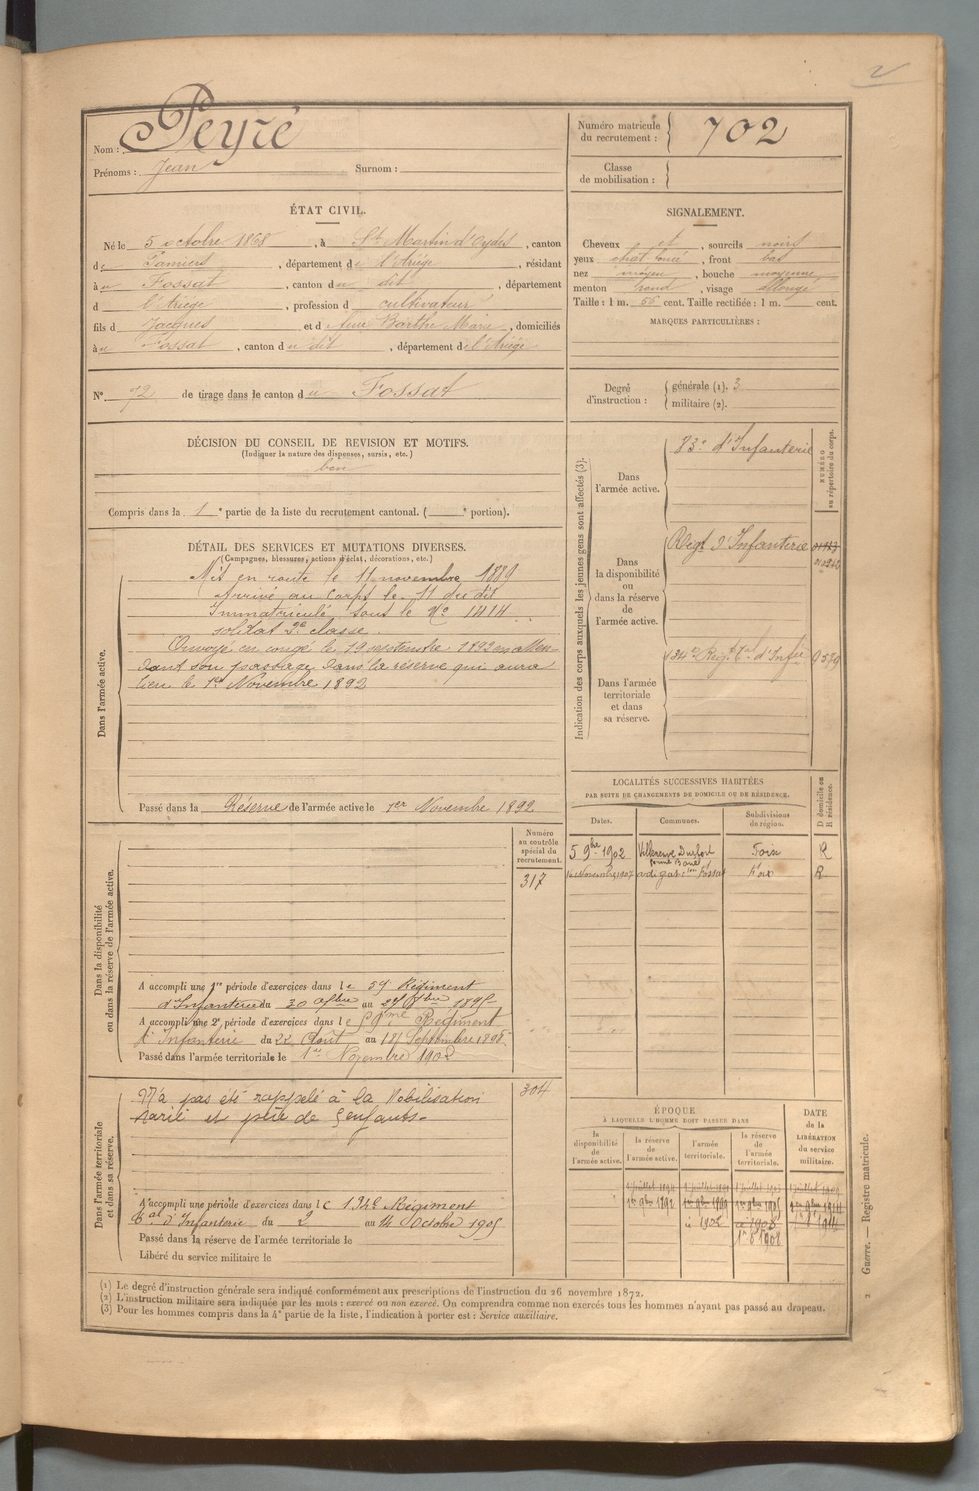 2
Nom : Peyré
Prénoms : Jean Surnom :
Numéro matricule du recrutement : 702
Classe de mobilisation :
ÉTAT CIVIL.
Né le 5 octobre 1868, à St Martin d'Oydes, canton
de Pamiers, département de l'Ariège, résidant
à u Fossat, canton du dit, département
d l'Ariège, profession d cultivateur
fils d Jacques et d Barthe Marie, domiciliés
à u Fossat, canton du dit, département de l'Ariège
N° 72 de tirage dans le canton du Fossat
SIGNALEMENT.
Cheveux et, sourcils noirs
yeux, front bas
nez moyen, bouche moyenne
menton rond, visage allongé
Taille : 1 m. cent. Taille rectifiée : 1 m. cent.
MARQUES PARTICULIÈRES :
Degré d'instruction : générale (1). 3
militaire (2).
DÉCISION DU CONSEIL DE REVISION ET MOTIFS.
(Indiquer la nature des dispenses, sursis, etc.)
bon
Compris dans la 1e partie de la liste du recrutement cantonal. ( e portion).
DÉTAIL DES SERVICES ET MUTATIONS DIVERSES.
(Campagnes, blessures, actions d'éclat, décorations, etc.)
Dans l'armée active.
Mis en route le 11 novembre 1889
Arrivé au Corps le 11 du dit
Immatriculé sous le No 1414
soldat 2e classe.
Envoyé en congé le 19 septembre 1892 en atten-
dant son passage dans la réserve qui aura
lieu le 1er Novembre 1892
Passé dans la Réserve de l'armée active le 1er Novembre 1892
Indication des corps auxquels les jeunes gens sont affectés (3).
NUMÉRO au répertoire du corps.
Dans l'armée active.
83e d'Infanterie
Dans la disponibilité ou dans la réserve de l'armée active.
Régt d'Infanterie
Dans l'armée territoriale et dans sa réserve.
134e Régt Tal d'Infie
Dans la disponibilité ou dans la réserve de l'armée active.
Numéro au contrôle spécial du recrutement.
317
A accompli une 1re période d'exercices dans le 59 Régiment
d'Infanterie du 30 au 1895
A accompli une 2e période d'exercices dans le 59me Régiment
d'Infanterie du 22 Août au 18 Septembre 1898
Passé dans l'armée territoriale le 1er Novembre 1902
LOCALITÉS SUCCESSIVES HABITÉES
PAR SUITE DE CHANGEMENTS DE DOMICILE OU DE RÉSIDENCE.
Dates. Communes. Subdivisions de région. D domicile ou R résidence.
5 9bre 1902 Villeneuve Durfort Foix R
Novembre 1907 Artigat con Fossat Foix R
Dans l'armée territoriale et dans sa réserve.
304
N'a pas été rappelé à la Mobilisation
Marié et père de enfants.
A accompli une période d'exercices dans le 134e Régiment
Tal d'Infanterie du 2 au 14 Octobre 1905
Passé dans la réserve de l'armée territoriale le
Libéré du service militaire le
ÉPOQUE
À LAQUELLE L'HOMME DOIT PASSER DANS
la disponibilité de l'armée active.
la réserve de l'armée active.
l'armée territoriale.
la réserve de l'armée territoriale.
DATE de la LIBÉRATION du service militaire.
(1) Le degré d'instruction générale sera indiqué conformément aux prescriptions de l'instruction du 26 novembre 1872.
(2) L'instruction militaire sera indiquée par les mots : exercé ou non exercé. On comprendra comme non exercés tous les hommes n'ayant pas passé au drapeau.
(3) Pour les hommes compris dans la 4e partie de la liste, l'indication à porter est : Service auxiliaire.
Guerre. — Registre matricule. 2